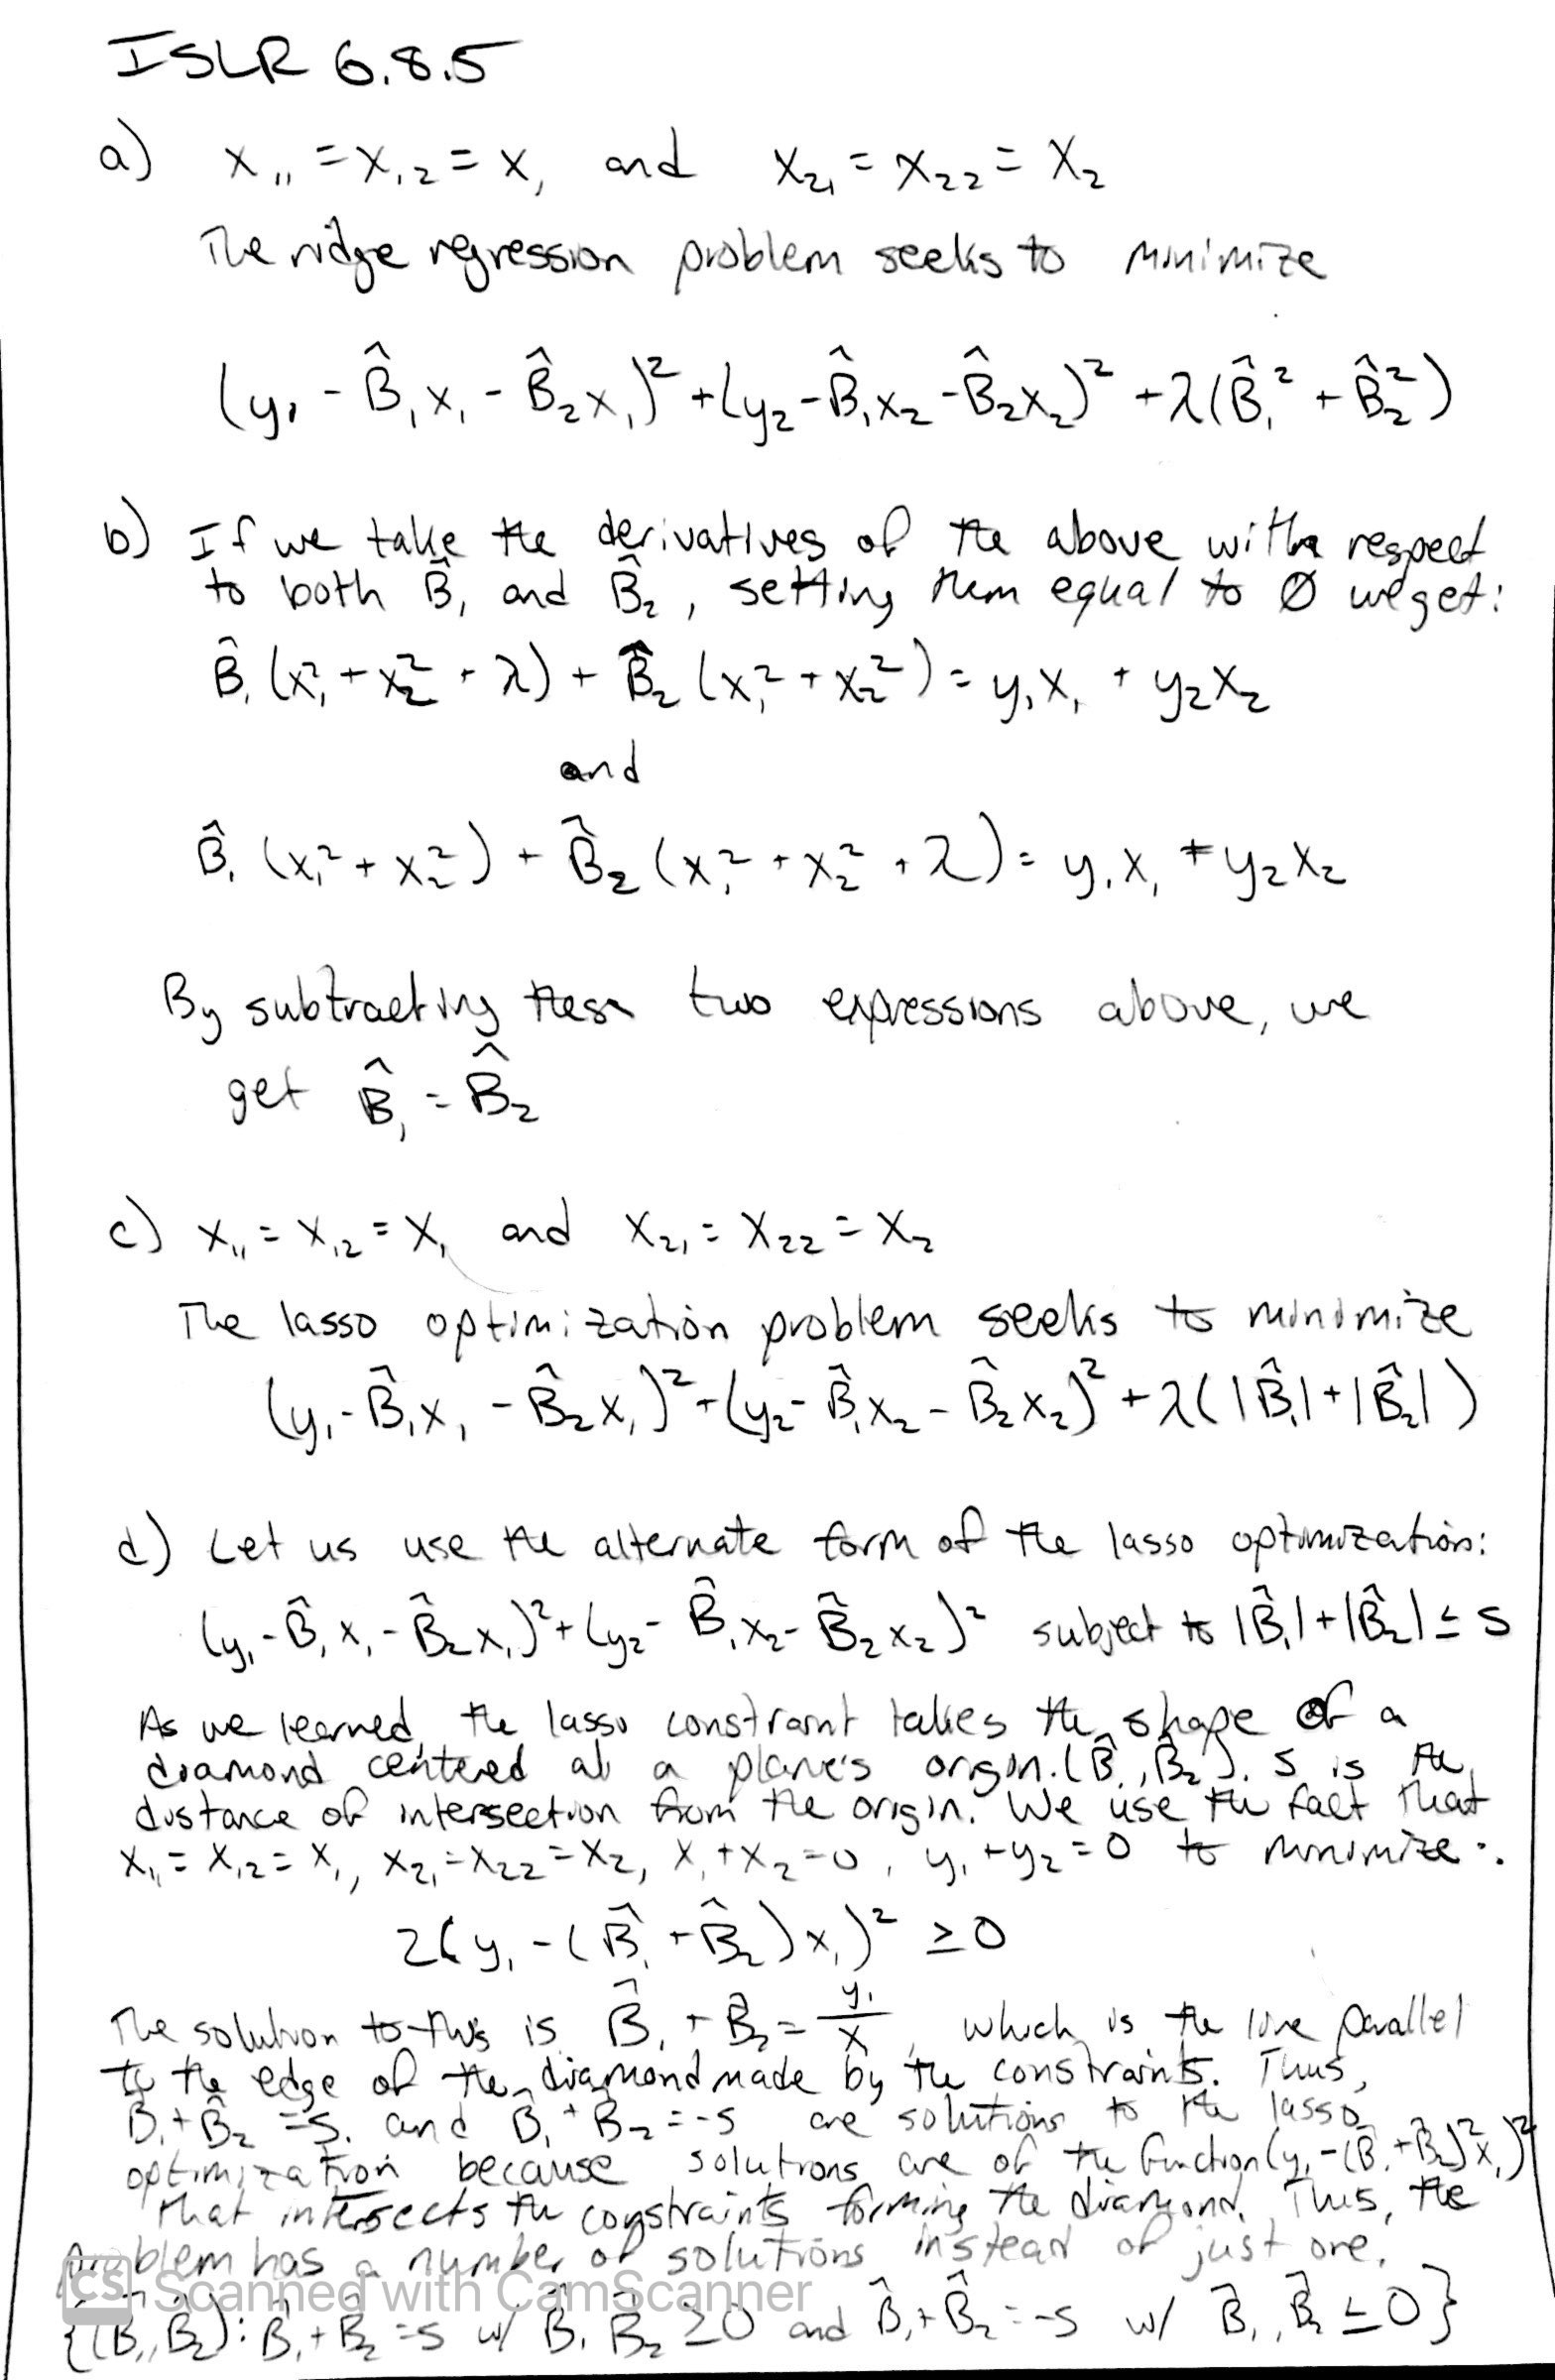 ISLR 6.8.5
a) x₁₁ = x₁₂ = x₁ and x₂₁ = x₂₂ = x₂
The ridge regression problem seeks to minimize
(y₁ - B̂₁x₁ - B̂₂x₁)² + (y₂ - B̂₁x₂ - B̂₂x₂)² + λ(B̂₁² + B̂₂²)
b) If we take the derivatives of the above with respect
to both B̂₁ and B̂₂, setting them equal to Ø we get:
B̂₁(x₁² + x₂² + λ) + B̂₂(x₁² + x₂²) = y₁x₁ + y₂x₂
and
B̂₁(x₁² + x₂²) + B̂₂(x₁² + x₂² + λ) = y₁x₁ + y₂x₂
By subtracting these two expressions above, we
get B̂₁ = B̂₂
c) x₁₁ = x₁₂ = x₁ and x₂₁ = x₂₂ = x₂
The lasso optimization problem seeks to minimize
(y₁ - B̂₁x₁ - B̂₂x₁)² + (y₂ - B̂₁x₂ - B̂₂x₂)² + λ(|B̂₁| + |B̂₂|)
d) Let us use the alternate form of the lasso optimization:
(y₁ - B̂₁x₁ - B̂₂x₁)² + (y₂ - B̂₁x₂ - B̂₂x₂)² subject to |B̂₁| + |B̂₂| ≤ s
As we learned, the lasso constraint takes the shape of a
diamond centered at a plane's origin. (B̂₁, B̂₂). s is the
distance of intersection from the origin. We use the fact that
x₁₁ = x₁₂ = x₁, x₂₁ = x₂₂ = x₂, x₁ + x₂ = 0, y₁ + y₂ = 0 to minimize:
2(y₁ - (B̂₁ + B̂₂)x₁)² ≥ 0
The solution to this is B̂₁ + B̂₂ = y₁/x, which is the line parallel
to the edge of the diamond made by the constraints. Thus,
B̂₁ + B̂₂ = s. and B̂₁ + B̂₂ = -s are solutions to the lasso
optimization because solutions are of the function (y₁ - (B̂₁ + B̂₂)²x₁)²
that intersects the constraints forming the diamond. Thus, the
problem has a number of solutions instead of just one.
{(B̂₁, B̂₂): B̂₁ + B̂₂ = s w/ B̂₁ B̂₂ ≥ 0 and B̂₁ + B̂₂ = -s w/ B̂₁, B̂₂ ≤ 0}
CS Scanned with CamScanner